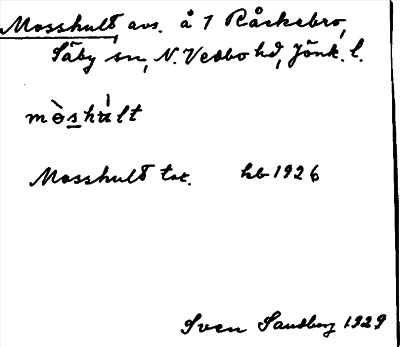 Mosshult, avs. å 1 Råckebro,
Säby sn, N. Vedbo hd, Jönk. l.
mòshúlt
Mosshult tor. hb 1926
Sven Sandberg 1929